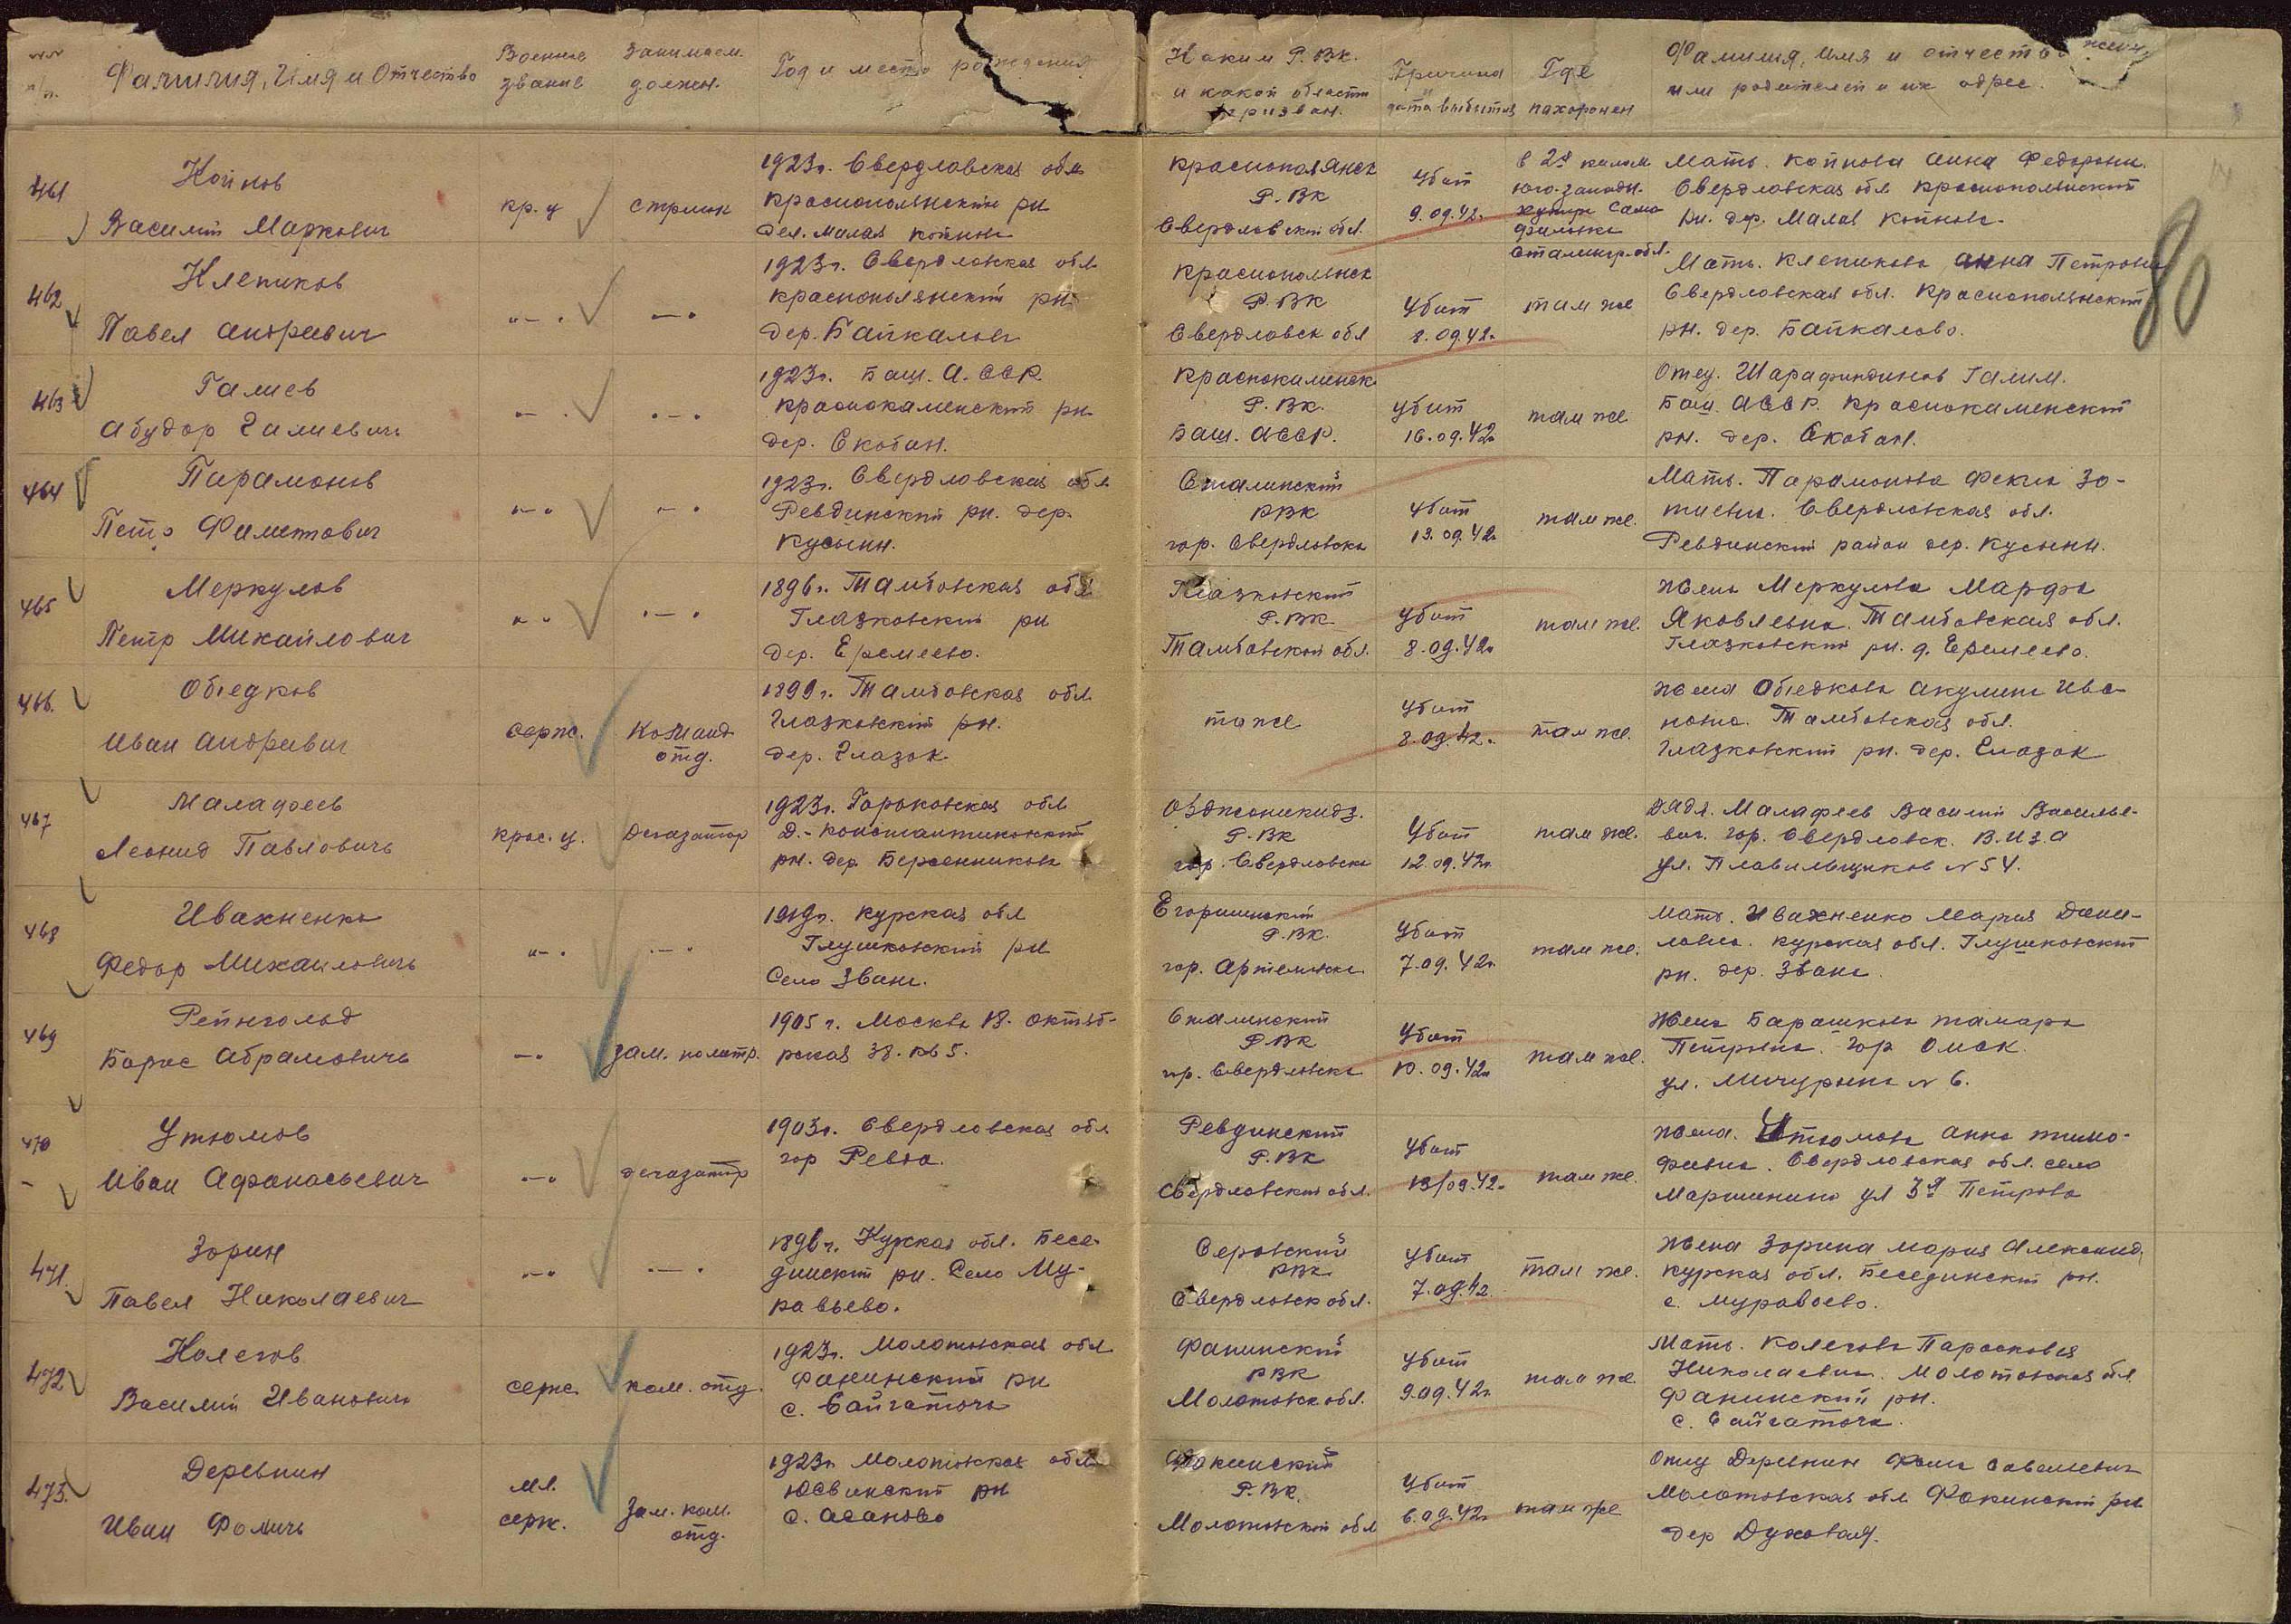 №№ п/п. Фамилия, Имя и Отчество Военные звание Занимаем. должн. Год и место рождения
Каким Р.Вк. и какой области призван. Причина и дата выбытия Где похоронен Фамилия, имя и отчество жены, или родителей и их адрес.
80
461 Койнов 1923г. Свердловская обл.
Василий Маркович кр-ц стрелок Краснополянский рн
дер. Малая Койнова
Краснополянск Р.ВК Свердловской обл. Убит 9.09.42г.
в 2х килом юго-западн. хутора Сталингр. обл.
Мать. Койнова Анна Федоровн.
Свердловская обл Краснополянский
рн. дер. Малая Койнова.
462 Клепиков 1923г. Свердловская обл.
Павел Андреевич "-" "-" Краснополянский рн
дер. Байкалово
Краснополянск Р.ВК Свердловск обл Убит 8.09.42г. там же
Мать. Клепикова Анна Петровна
Свердловская обл. Краснополянский
рн. дер. Байкалово.
463 Галиев 1923г. Баш. А.ССР.
Абудар Галиевичь "-" "-" Краснокаменский рн.
дер. Скобан.
Краснокаминск. Р.Вк. Баш. АССР. Убит 16.09.42г там же
Отец. Шарафиндинов Галим.
Баш. АССР. Краснокаменский
рн. дер. Скобан.
464 Парамонов 1923г. Свердловская обл
Петр Филиппович "-" "-" Ревдинский рн. дер.
Сталинский РВК гор. Свердловска Убит 13.09.42г там же.
Мать. Парамонова Фекла Зо-
тиевна. Свердловская обл.
Ревдинский район дер.
465 Меркулов 1896г. Тамбовская обл.
Петр Михайлович "-" "-" Глазковский рн
дер. Еремеево.
Глазковский Р.ВК Тамбовской обл. Убит 8.09.42г там же.
жена Меркулова Марфа
Яковлевна. Тамбовская обл.
Глазковский рн. д. Еремеево.
466. Обьедков 1899г. Тамбовская обл.
Иван Андреевич серж. Команд отд. Глазковский рн.
дер. Глазок.
то же Убит 8.09.42г. там же.
жена Обьедкова Акулина Ива-
новна. Тамбовская обл.
Глазковский рн. дер. Глазок
467 Малафеев 1923г. Горьковская обл
Леонид Павловичь крас-ц. Дегазатор Д.-Константиновский
рн. дер.
Орджоникидз. Р.ВК гор. Свердловска Убит 12.09.42г. там же.
Дядя. Малафеев Василий Василье-
вич. гор. Свердловск. В.И.З.а
ул. Плавильщиков №54.
468 Ивахненко 1919г. Курская обл
Федор Михаиловичь "-" "-" Глушковский рн
Село Званн.
Егоршинский Р.ВК. гор. Артемовска Убит 7.09.42г. там же.
Мать. Ивахненко Мария Дани-
ловна. Курская обл. Глушковский
рн. дер.
469 Рейнгольд 1905г. Москва 18. октяб-
Борис Абрамовичь "-" Зам. политр. рская 38. кв 5.
Сталинский Р.ВК гор. Свердловска Убит 10.09.42г там же.
Жена Барашкова Тамара
Петровна. гор Омск.
ул. Мичурина №6.
470 Утюмов 1903г. Свердловская обл
Иван Афанасьевич "-" дегазатор гор Ревда.
Ревдинский Р.ВК Свердловский обл. Убит 13/09.42г. там же.
жена. Утюмова Анна Тимо-
феевна. Свердловская обл. село
Мариинино ул 3я Петрова
471. Зорин 1896г. Курская обл. Бесе-
Павел Николаевич "-" "-" динский рн. Село Му-
равьево.
Серовский РВК Свердловск обл. Убит 7.09.42 там же.
жена Зорина Мария Александ.
Курская обл. Беседенский рн.
с. Муравьево.
472 Колегов 1923г. Молотовская обл.
Василий Ивановичь серж. ком. отд. Факинский рн
с. Сайгаточа
Факинский РВК Молотовск обл. Убит 9.09.42г. там же
Мать. Колегова Парасковья
Николаевна. Молотовская обл
Факинский рн.
с. Сайгаточа.
473. Деревнин 1923г. Молотовская обл.
Иван Фомичь мл. серж. Зам. ком. отд. Юсвинский рн
с. Асаново
Фокинский Р.ВК. Молотовский обл Убит 6.09.42г. там же
Отец Деревнин Фома Савельевич
Молотовская обл Фокинский рн
дер Духовая.